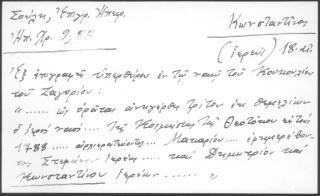 Σούλη, Ἐπιγρ. Ἠπείρ.
Κωνσταντῖνος
Ἠπ. Χρ. 9,88
(ἱερεύς) 18. αἰ.
Ἐξ ἐπιγραφῆς ὑπερθύρου ἐν τῷ ναῷ τοῦ Κουκουλίου
τοῦ Ζαγορίου:
«...... ὡς ὁρᾶται ἀνηγέρθη τρίτον ἐκ θεμελίων
ὁ ἱερὸς ναὸς .... Τῆς Κοιμήσεως τῆς Θεοτόκου εἰ τοῦ
1788 .... ἀρχιερατεύοντος .. Μακαρίου ....
τος Στεφάνου Ἱερέως .... καὶ Δημητρίου καὶ
Κωνσταντίνου Ἱερέων ...... »